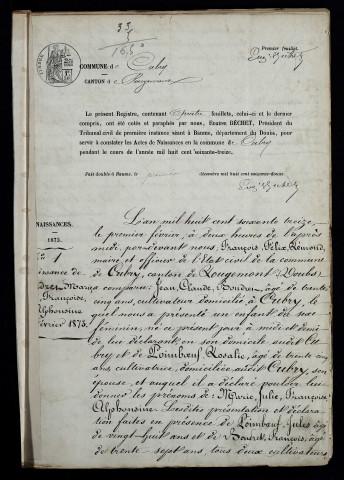 Premier feuillet.
COMMUNE d Cubry
CANTON d Rougemont
Le présent Registre, contenant quatre feuillets, celui-ci et le dernier
compris, ont été cotés et paraphés par nous, Eustee BÉCHET, Président du
Tribunal civil de première instance séant à Baume, département du Doubs, pour
servir à constater les Actes de Naissances en la commune de Cubry
pendant le cours de l'année mil huit cent soixante-treize.
Fait double à Baume, le premier décembre mil huit cent soixante-douze.
NAISSANCES.
1873.
L'an mil huit cent soixante treize,
le premier février, à deux heures de l'après
midi, par-devant nous, François, Félix, Rémond,
maire, et officier de l'Etat civil de la commune
de Cubry, canton de Rougemont (Doubs)
a comparu: Jean, Claude, Bourdon, âgé de trente
cinq ans, cultivateur, domicilié à Cubry, le
quel nous a présenté un enfant du sexe
féminin, né ce présent jour à midi et demi
de lui déclarant, en son domicile audit Cu
bry et de Loimbœuf, Rosalie, âgée de trente cinq
ans, cultivatrice, domiciliée audit Cubry, son
épouse, et auquel il a déclaré vouloir lui
donner les prénoms de: Marie, Julie, Françoise
Alphonsine. Lesdites présentation et déclara
tion faites en présence de Loimbœuf, Jules âgé
de vingt-huit ans et de François, âgé
de trente-sept ans, tous deux cultivateurs
№ 1
Naissance de
Françoise,
Alphonsine
février 1873.